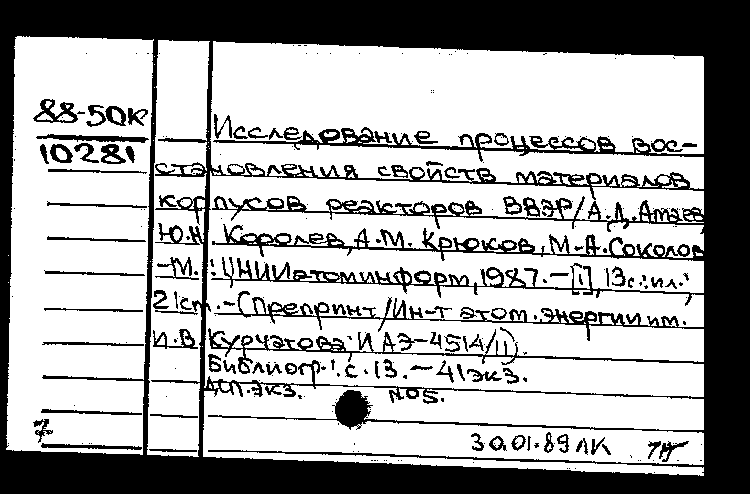 88-50К
10281
Исследование процессов вос-
становления свойств материалов
корпусов реакторов ВВЭР/А.Д. Амаев,
Ю.Н. Королев, А.М. Крюков, М.А. Соколов
-М.: ЦНИИатоминформ, 1987.-[1], 13с.:ил.;
21см.-(Препринт/Ин-т атом. энергии им.
И.В. Курчатова; ИАЭ-4514/11).
Библиогр.: с.13. - 41 экз.
ДСП. ЭКЗ. N05.
30.01.89 ЛК